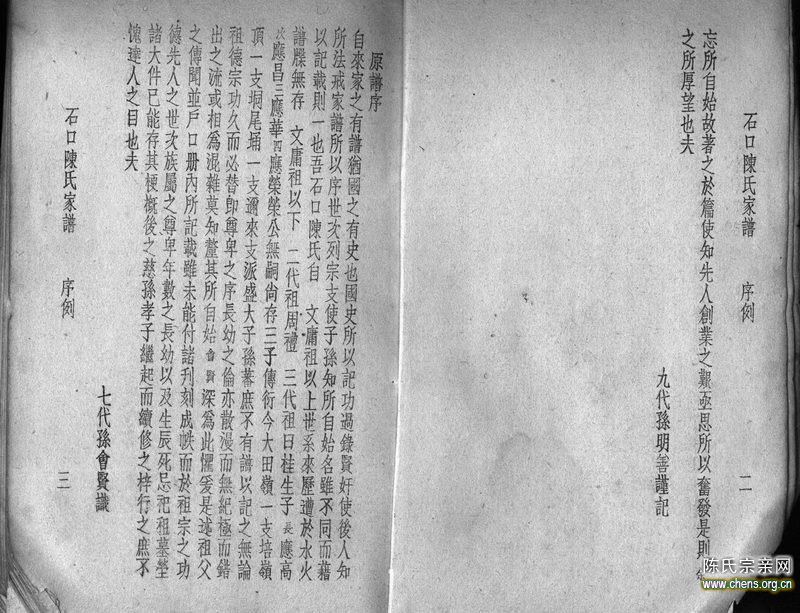 石口陳氏家譜　序例　二
忘所自始故著之於篇使知先人創業之艱亟思所以奮發是則
之所厚望也夫
九代孫明善謹記
原譜序
自來家之有譜猶國之有史也國史所以記功過錄賢奸使後人知
所法戒家譜所以序世次列宗支使子孫知所自始名雖不同而藉
以記載則一也吾石口陳氏自　文庸祖以上世系來歷遭於水火
譜牒無存　文庸祖以下　二代祖周禮　三代祖日桂生子長應高
次應昌三應華四應榮榮公無嗣尙存三子傳衍今大田嶺一支培嶺
頂一支垌尾埇一支邇來支派盛大子孫蕃庶不有譜以記之無論
祖德宗功久而必替卽尊卑之序長幼之倫亦散漫而無紀極而錯
出之流或相爲混雜莫知釐其所自始會賢深爲此懼爰是述祖父
之傳聞並戶口册內所記載雖未能付諸刋刻成帙而於祖宗之功
德先人之世次族屬之尊卑年數之長幼以及生辰死忌祀祖墓塋
諸大件已能存其梗槪後之慈孫孝子繼起而續修之梓行之庶不
愧達人之目也夫
七代孫會賢識
石口陳氏家譜　序例　三
陈氏宗亲网
www.chens.org.cn